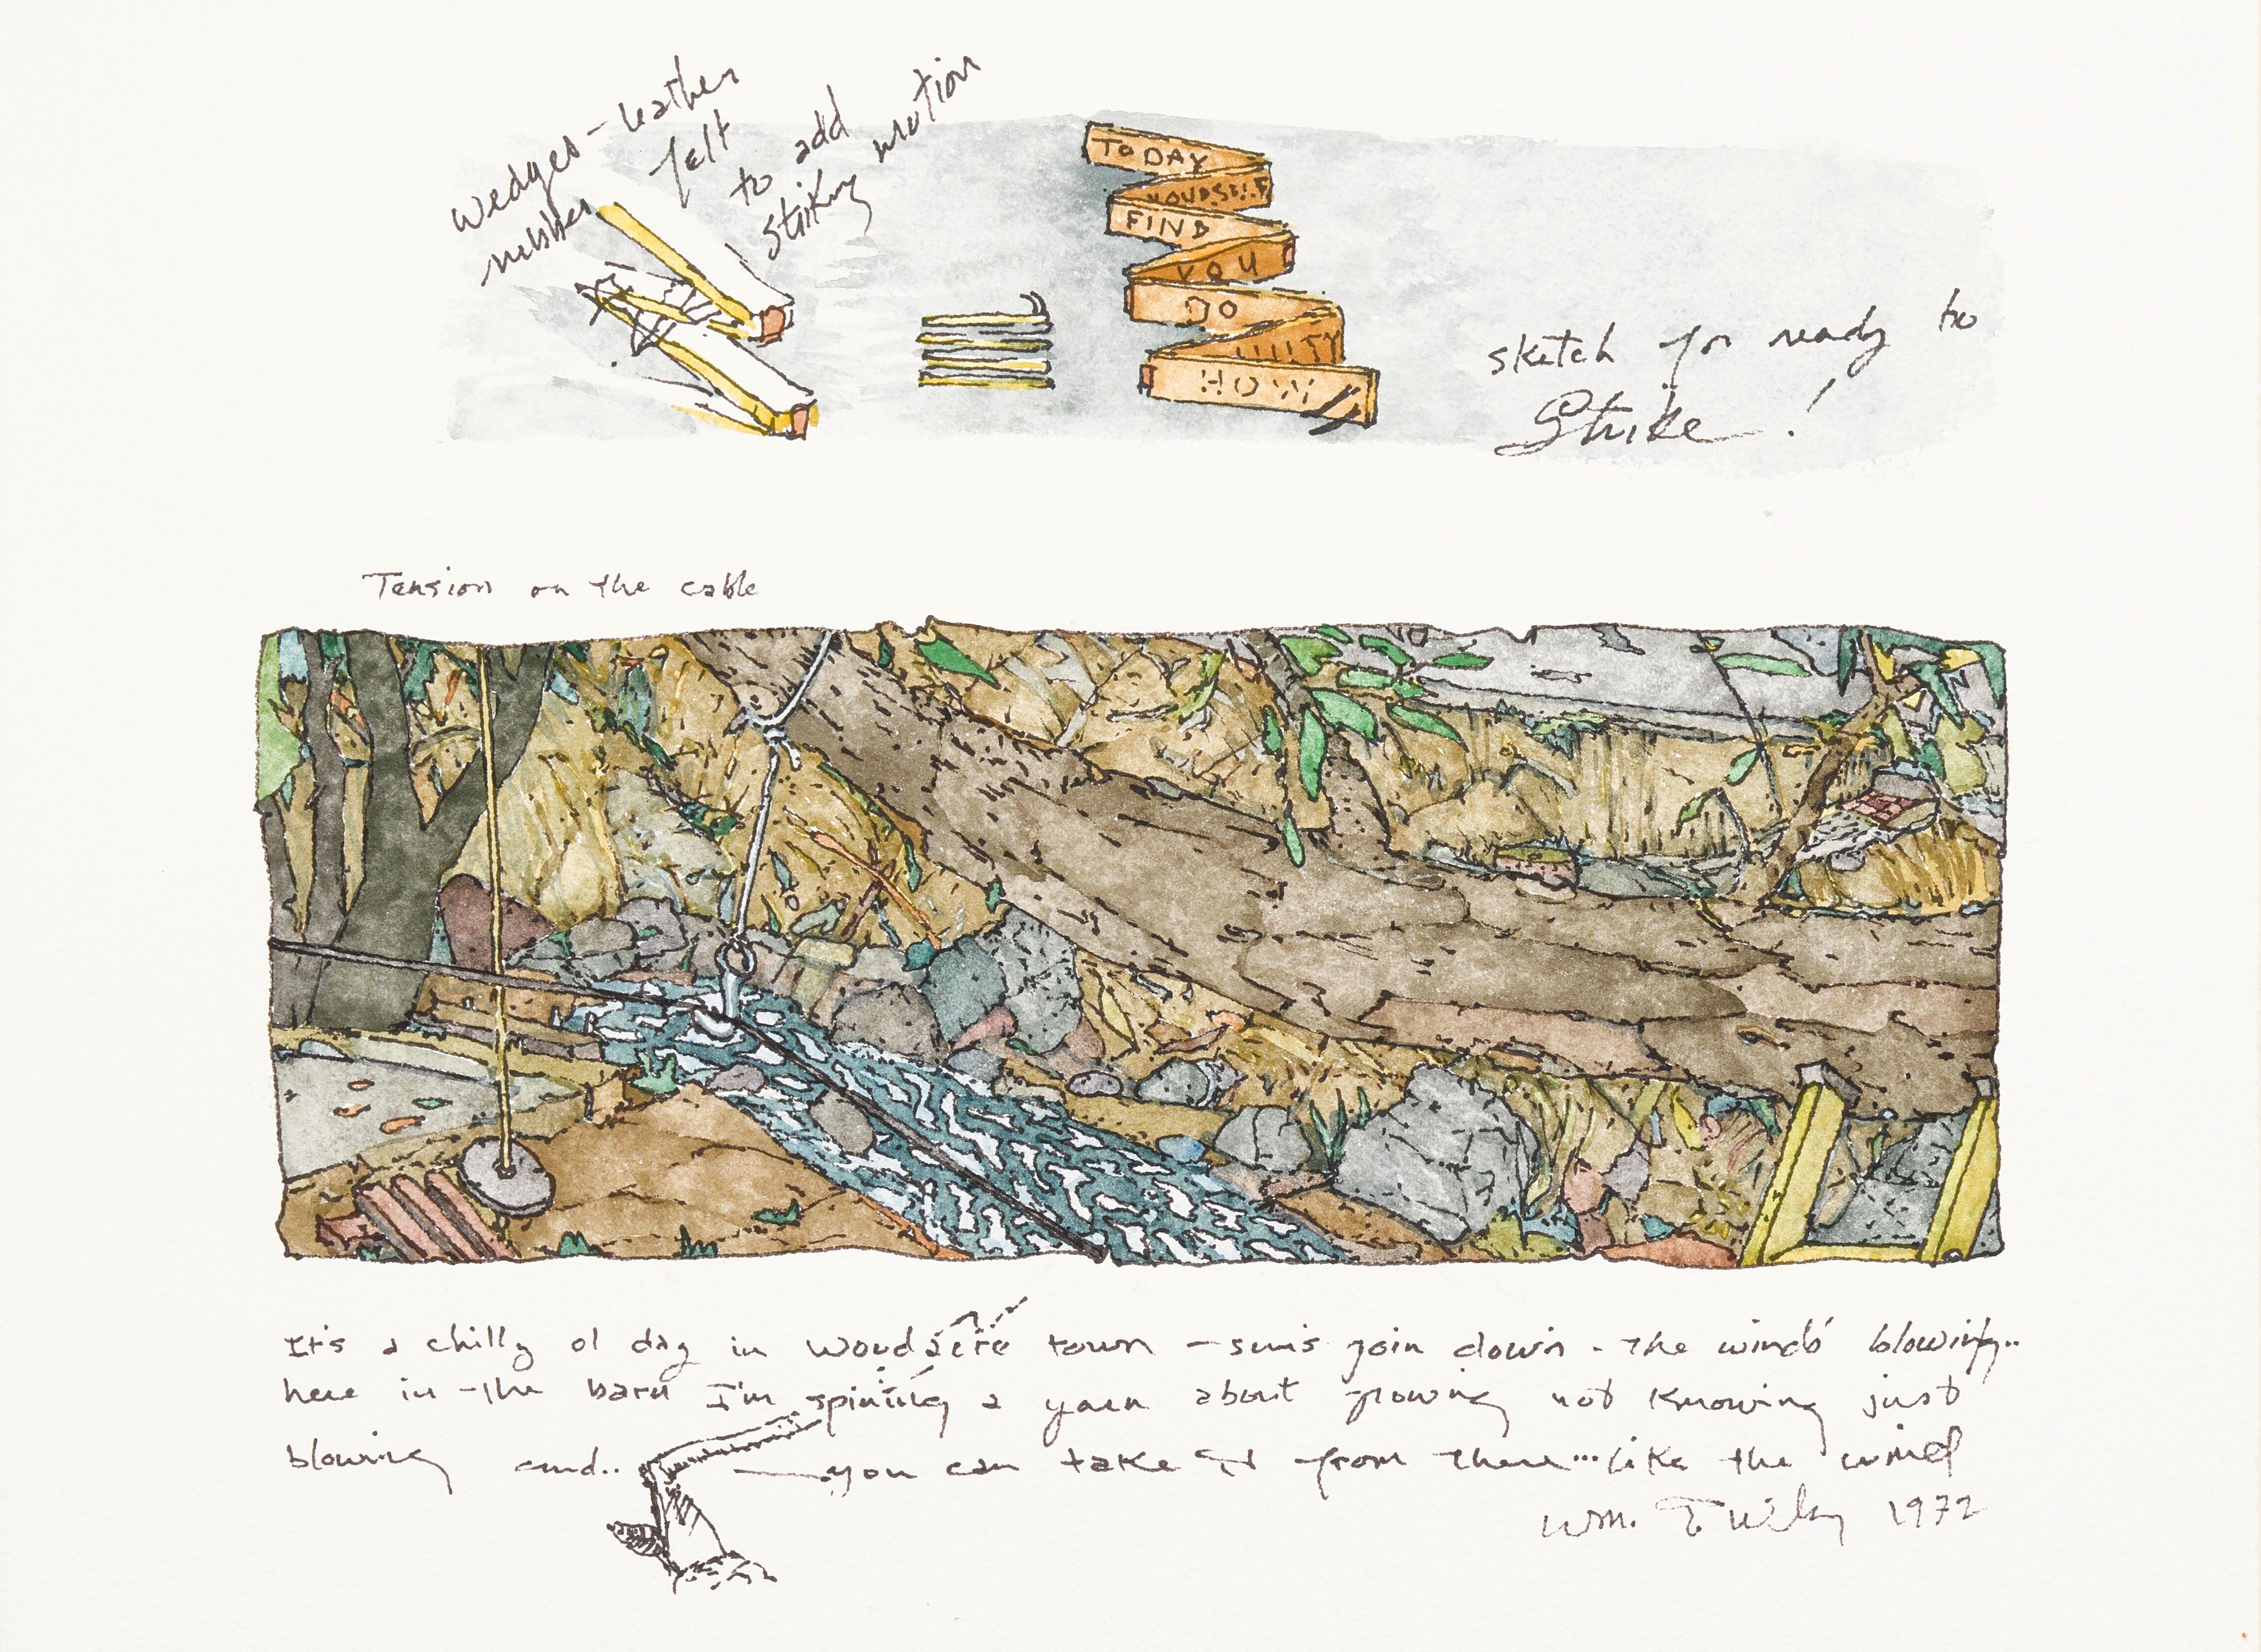 wedges - leather
rubber felt
to add
striking motion
TODAY
YOURSELF
FIND
YOU
DO
HOW
sketch for ready to
Strike!
Tension on the cable
It's a chilly ol day in Woodacre town - sun's goin down - the winds blowing..
here in the barn I'm spining a yarn about growing not knowing just
blowing and.. you can take it from there... like the wind
Wm. T. Wiley 1972